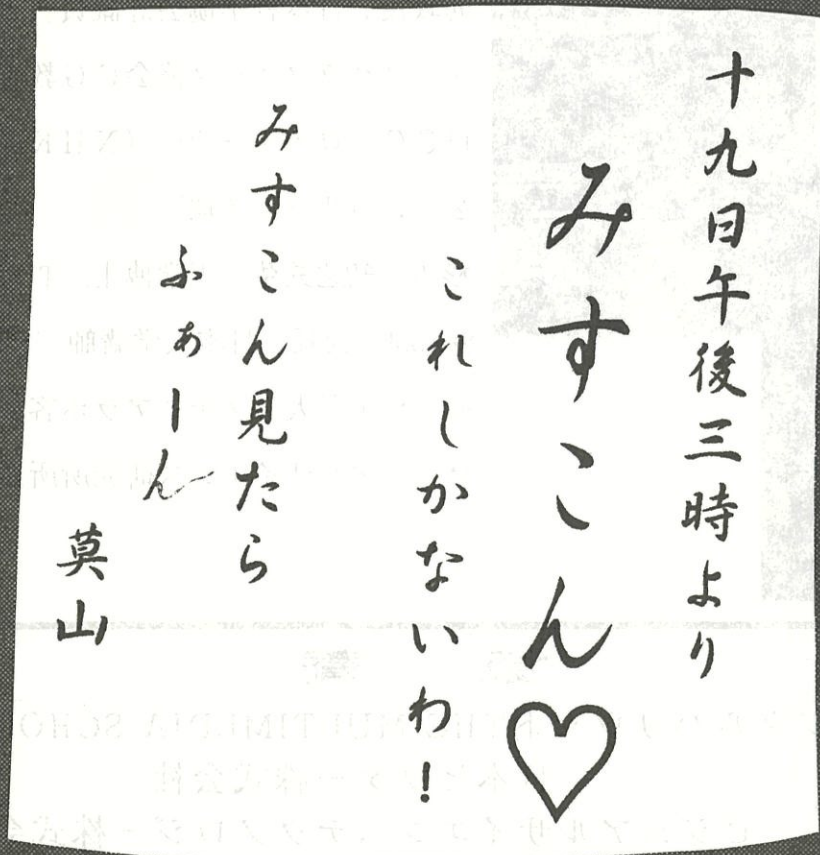 十九日午後三時より
みすこん♡
これしかないわ!
みすこん見たら
ふぁーん
莫山